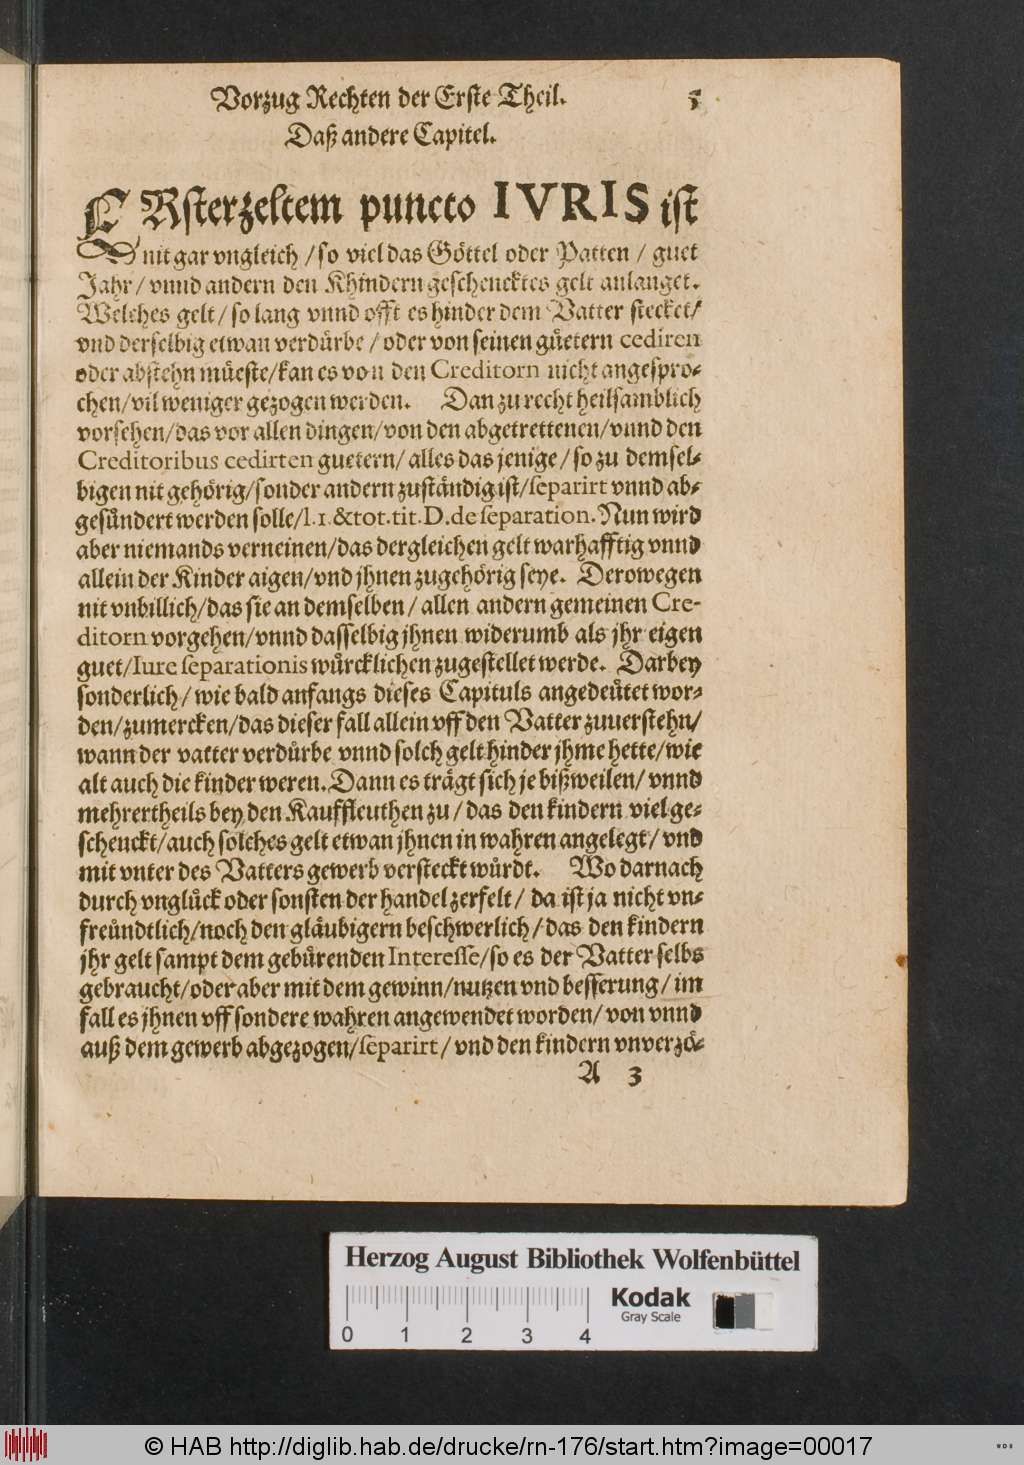 Vorzug Rechten der Erste Theil. 5
Daß andere Capitel.
ERsterzeltem puncto IVRIS ist
nit gar vngleich / so viel das Göttel oder Patten / guet
Jahr / vnnd andern den Khindern geschencktes gelt anlanget.
Welches gelt / so lang vnnd offt es hinder dem Vatter stecket /
vnd derselbig etwan verdürbe / oder von seinen güetern cediren
oder abstehn müeste / kan es von den Creditorn nicht angespro-
chen / vil weniger gezogen werden. Dan zu recht heilsamblich
vorsehen / das vor allen dingen / von den abgetrettenen / vnnd den
Creditoribus cedirten guetern / alles das jenige / so zu demsel-
bigen nit gehörig / sonder andern zuständig ist / separirt vnnd ab-
gesündert werden solle / l.1.&tot.tit.D.de separation. Nun wird
aber niemands verneinen / das dergleichen gelt warhafftig vnnd
allein der Kinder aigen / vnd jhnen zugehörig seye. Derowegen
nit vnbillich / das sie an demselben / allen andern gemeinen Cre-
ditorn vorgehen / vnnd dasselbig jhnen widerumb als jhr eigen
guet / Iure separationis würcklichen zugestellet werde. Darbey
sonderlich / wie bald anfangs dieses Capituls angedeütet wor-
den / zumercken / das dieser fall allein vff den Vatter zuuerstehn /
wann der vatter verdürbe vnnd solch gelt hinder jhme hette / wie
alt auch die kinder weren. Dann es trägt sich je bißweilen / vnnd
mehrertheils bey den Kauffleuthen zu / das den kindern viel ge-
schenckt / auch solches gelt etwan jhnen in wahren angelegt / vnd
mit vnter des Vatters gewerb versteckt würdt. Wo darnach
durch vnglück oder sonsten der handel zerfelt / da ist ja nicht vn-
freündtlich / noch den gläubigern beschwerlich / das den kindern
jhr gelt sampt dem gebürenden Interesse / so es der Vatter selbs
gebraucht / oder aber mit dem gewinn / nutzen vnd besserung / im
fall es jhnen vff sondere wahren angewendet worden / von vnnd
auß dem gewerb abgezogen / separirt / vnd den kindern vnverzö-
A 3
Herzog August Bibliothek Wolfenbüttel
0 1 2 3 4
Kodak
Gray Scale
© HAB http://diglib.hab.de/drucke/rn-176/start.htm?image=00017